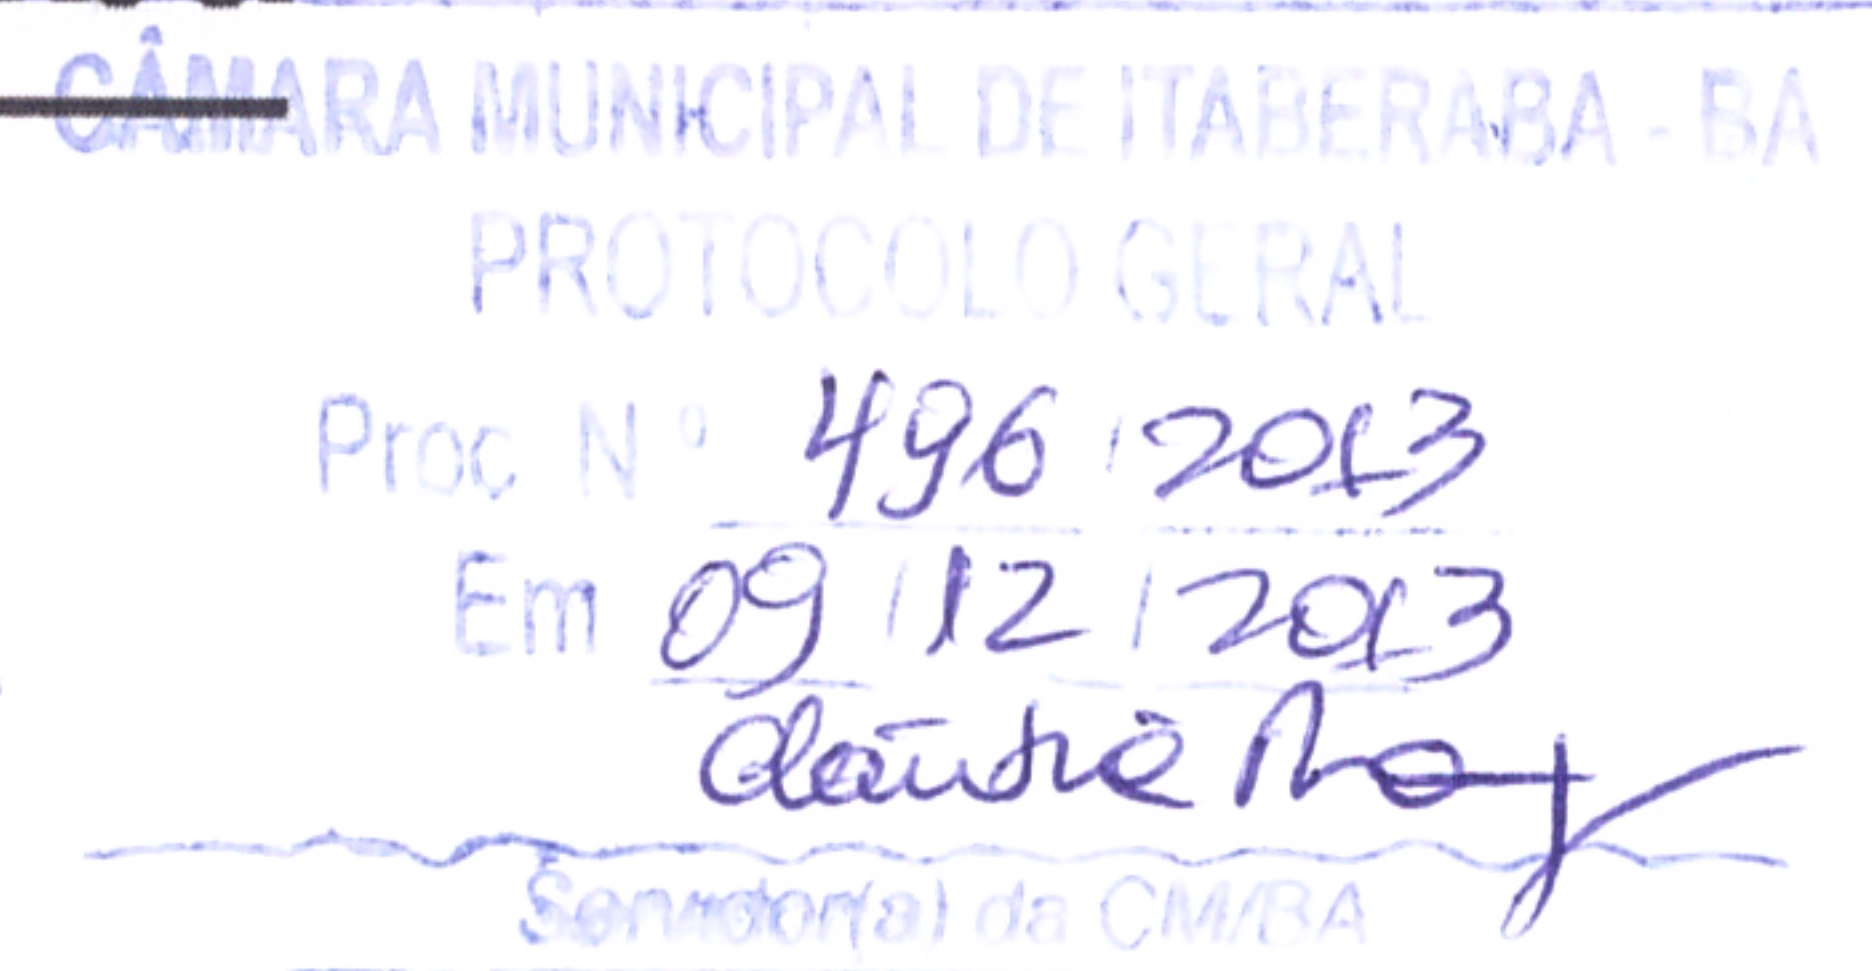 CÂMARA MUNICIPAL DE ITABERABA - BA
PROTOCOLO GERAL
Proc Nº 496 / 2013
Em 09 / 12 / 2013
Cláudia
Servidor(a) da CM/BA